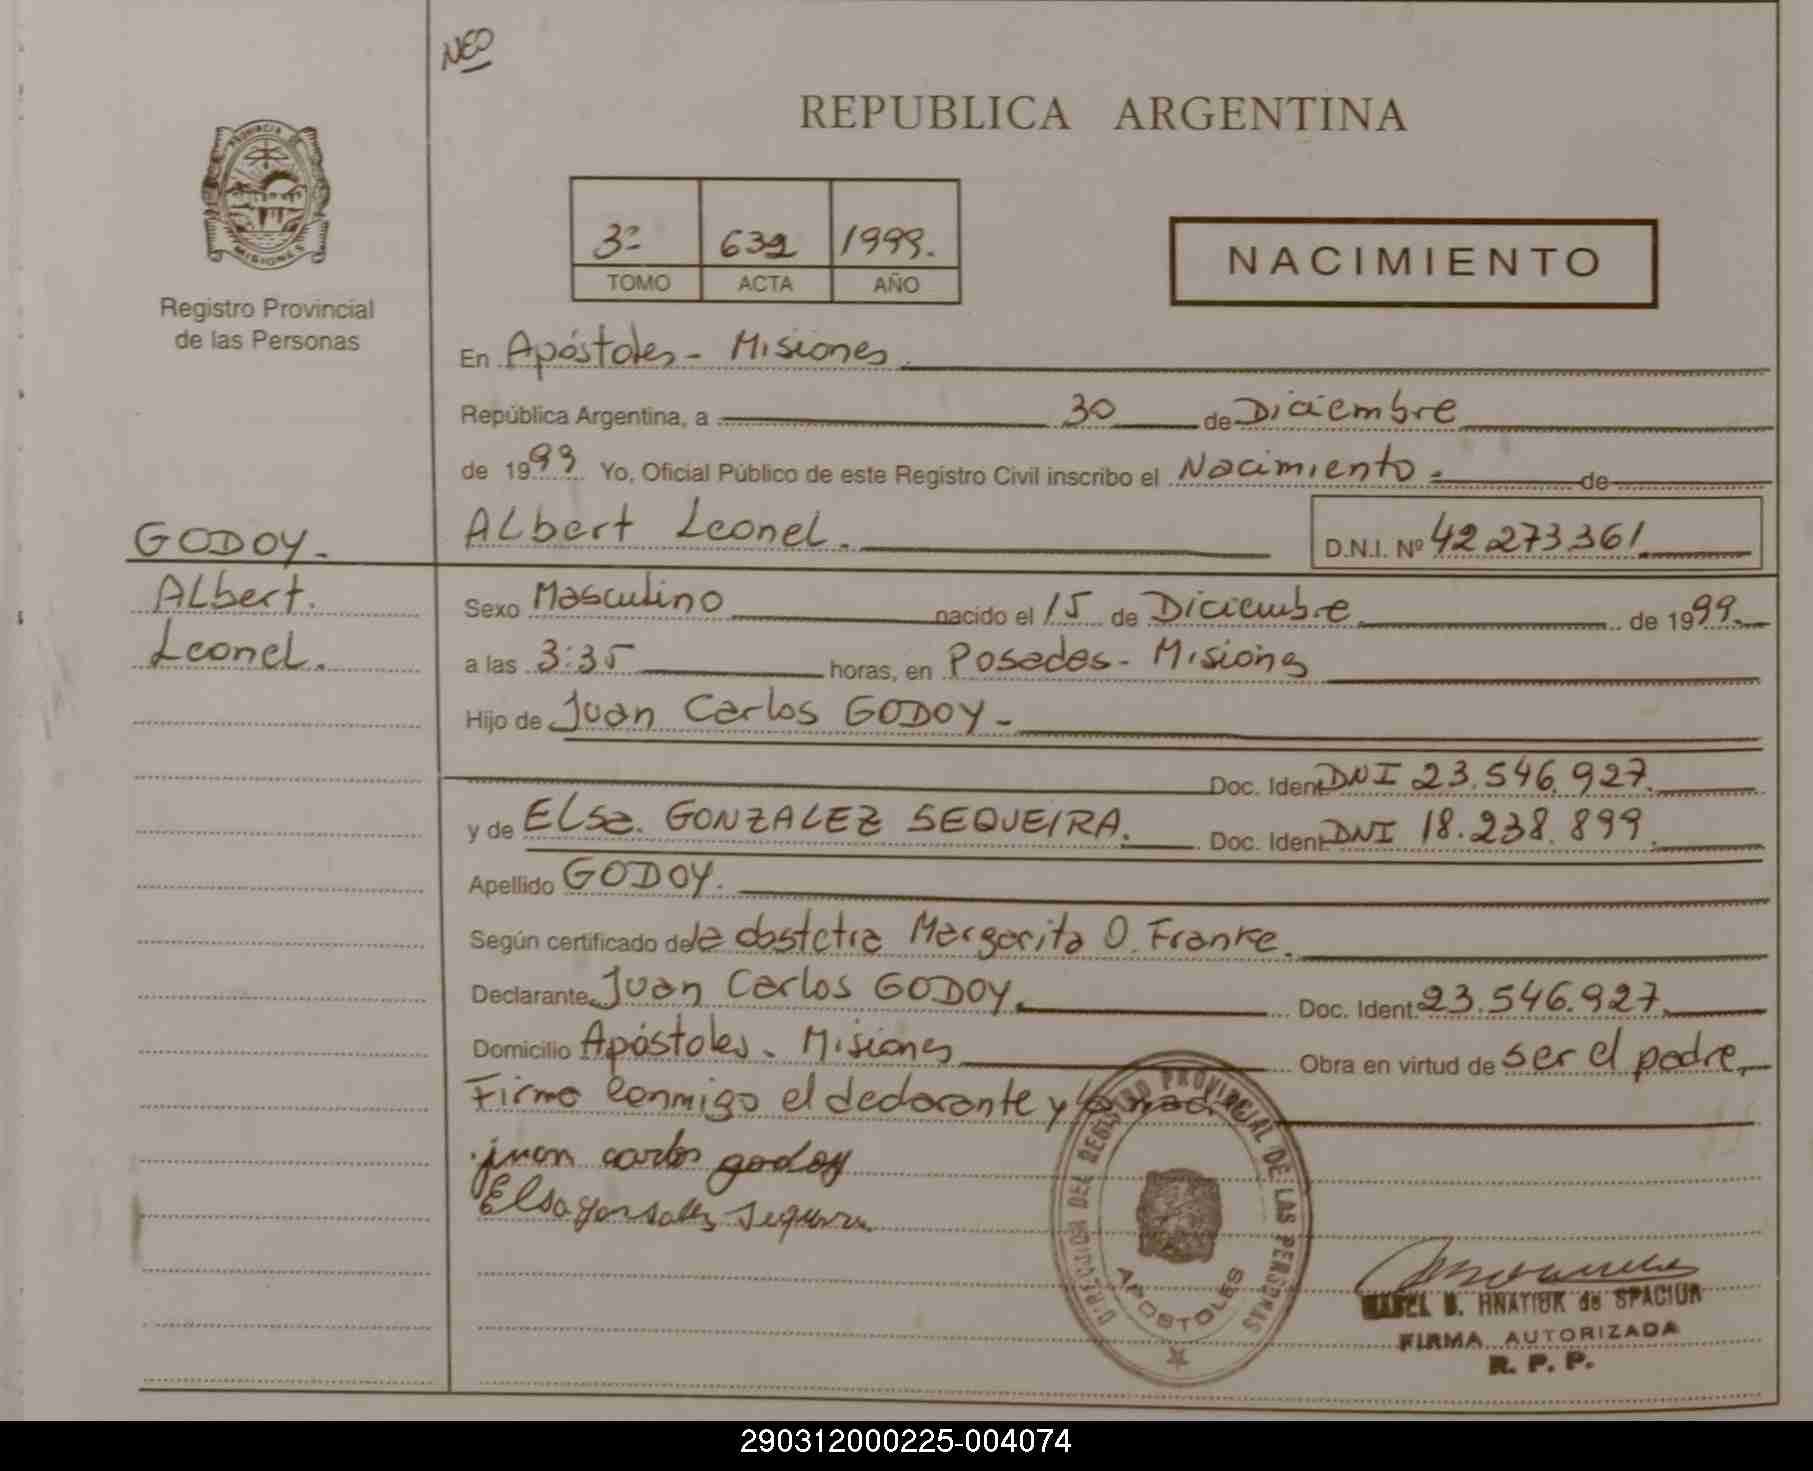 NEO
REPUBLICA ARGENTINA
PROVINCIA DE
MISIONES
Registro Provincial
de las Personas
3º 632 1999.
TOMO ACTA AÑO
NACIMIENTO
En Apóstoles - Misiones
República Argentina, a 30 de Diciembre
de 1999 Yo, Oficial Público de este Registro Civil inscribo el Nacimiento - de
Albert Leonel. D.N.I. Nº 42.273.361
GODOY -
Albert.
Leonel.
Sexo Masculino nacido el 15 de Diciembre de 1999.
a las 3:35 horas, en Posadas - Misiones
Hijo de Juan Carlos GODOY -
Doc. Ident DNI 23.546.927.
y de Elsa. GONZALEZ SEQUEIRA. Doc. Ident DNI 18.238.899.
Apellido GODOY.
Según certificado de la obstetra Margarita O. Franke.
Declarante Juan Carlos GODOY. Doc. Ident. 23.546.927.
Domicilio Apóstoles - Misiones Obra en virtud de ser el padre,
Firma Conmigo el declarante y la madre
juan carlos godoy
Elsa gonsales sequeira
DIRECCION DEL REGISTRO PROVINCIAL DE LAS PERSONAS
APOSTOLES
HNATIUK de SPACIUK
FIRMA AUTORIZADA
R. P. P.
290312000225-004074